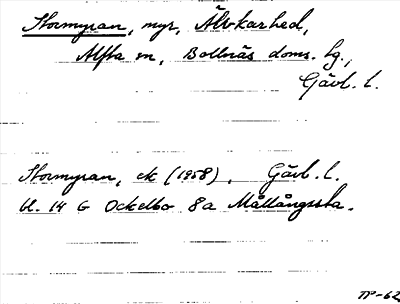 Stormyran, myr, Älvkarhed,
Alfta sn, Bollnäs doms. hg.,
Gävl. l.
Stormyran, ek (1958), Gävl. l.
bl. 14 G Ockelbo 8a Mållångssta.
TP-62